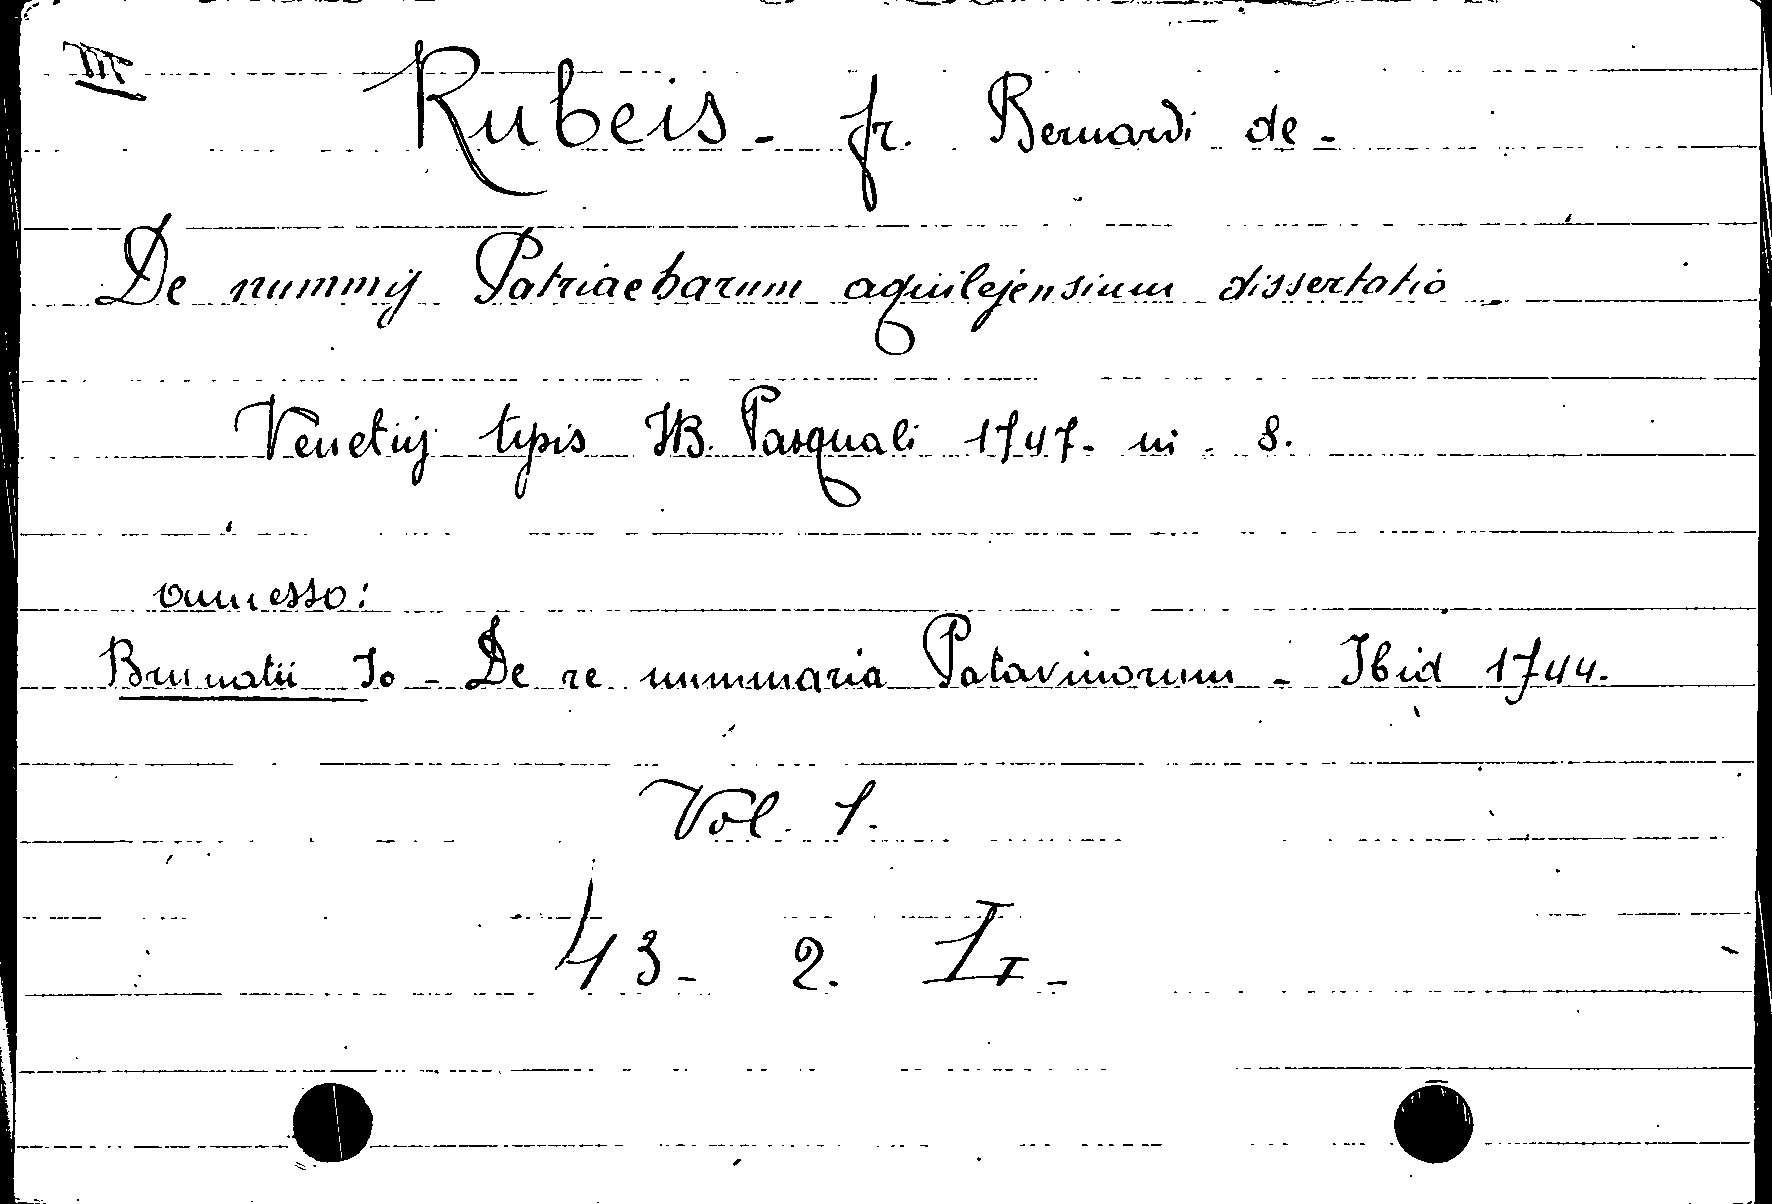 III
Rubeis - fr. Bernardi de -
De nummij Patriacharum aquilejensium dissertatio -
Venetij typis JB. Pasquali 1747. in . 8.
annesso:
Brunatii Jo - De re nummaria Patavinorum - Ibid 1744.
Vol. 1.
43 - 2.